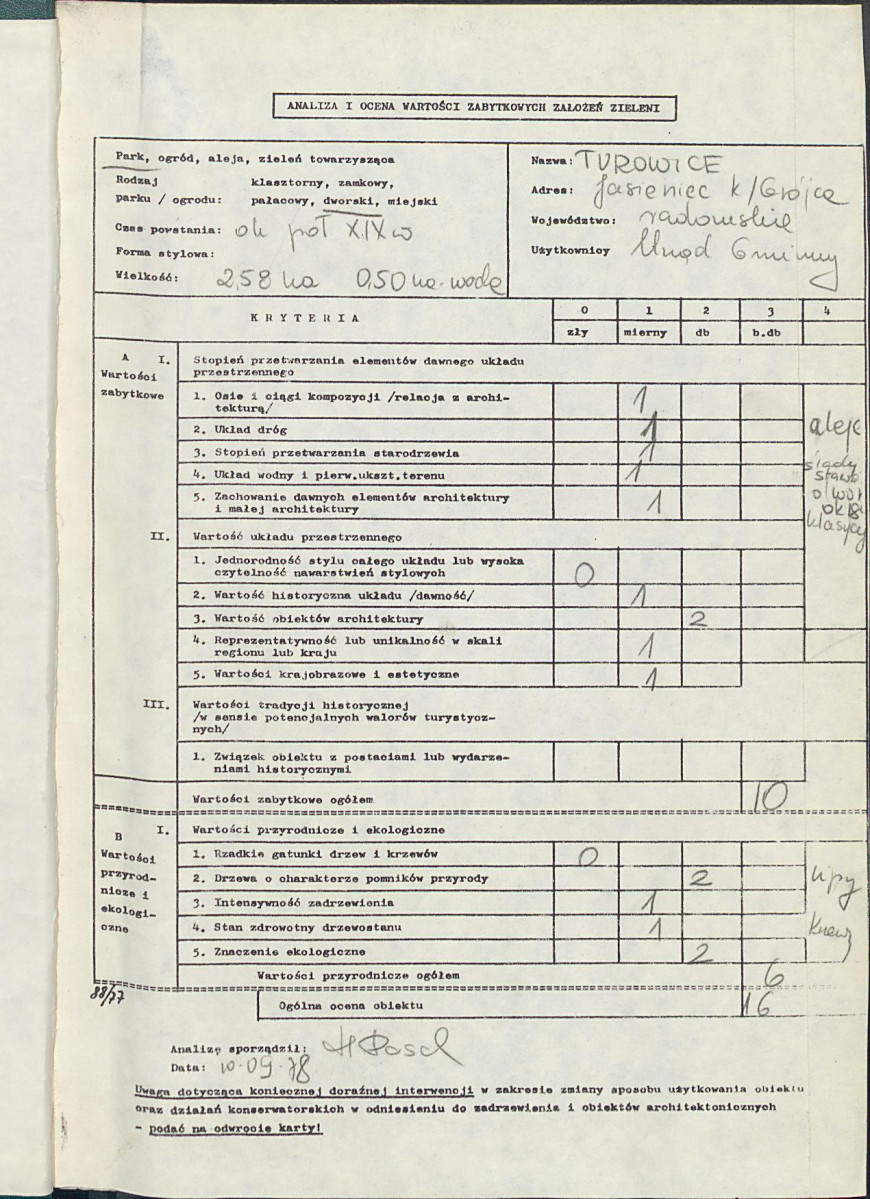 ANALIZA I OCENA WARTOŚCI ZABYTKOWYCH ZAŁOŻEŃ ZIELENI
Park, ogród, aleja, zieleń towarzysząca
Rodzaj klasztorny, zamkowy,
parku / ogrodu: pałacowy, dworski, miejski
Czas powstania: ok poł XIX w
Forma stylowa:
Wielkość: 2,58 ha 0,50 ha-woda
Nazwa: TUROWICE
Adres: Jasieniec k/Grójca
Województwo: radomskie
Użytkownicy Urząd Gminny
KRYTERIA
0 1 2 3 4
zły mierny db b.db
A I. Stopień przetwarzania elementów dawnego układu
Wartości przestrzennego
zabytkowe
1. Osie i ciągi kompozycji /relacja z archi-
tekturą/ 1
2. Układ dróg 1 aleje
3. Stopień przetwarzania starodrzewia 1
4. Układ wodny i pierw.ukszt.terenu 1 ślady
5. Zachowanie dawnych elementów architektury
i małej architektury 1
II. Wartość układu przestrzennego
1. Jednorodność stylu całego układu lub wysoka
czytelność nawarstwień stylowych 0
2. Wartość historyczna układu /dawność/ 1
3. Wartość obiektów architektury 2
4. Reprezentatywność lub unikalność w skali
regionu lub kraju 1
5. Wartości krajobrazowe i estetyczne 1
III. Wartości tradycji historycznej
/w sensie potencjalnych walorów turystycz-
nych/
1. Związek obiektu z postaciami lub wydarze-
niami historycznymi
Wartości zabytkowe ogółem 10
B I. Wartości przyrodnicze i ekologiczne
Wartości
przyrod-
nicze i
ekologi-
czne
1. Rzadkie gatunki drzew i krzewów 0
2. Drzewa o charakterze pomników przyrody 2 lipy
3. Intensywność zadrzewienia 1
4. Stan zdrowotny drzewostanu 1
5. Znaczenie ekologiczne 2
Wartości przyrodnicze ogółem 6
88/77
Ogólna ocena obiektu 16
Analizę sporządził:
Data: 10.09.78
Uwaga dotycząca koniecznej doraźnej interwencji w zakresie zmiany sposobu użytkowania obiektu
oraz działań konserwatorskich w odniesieniu do zadrzewienia i obiektów architektonicznych
- podać na odwrocie karty!